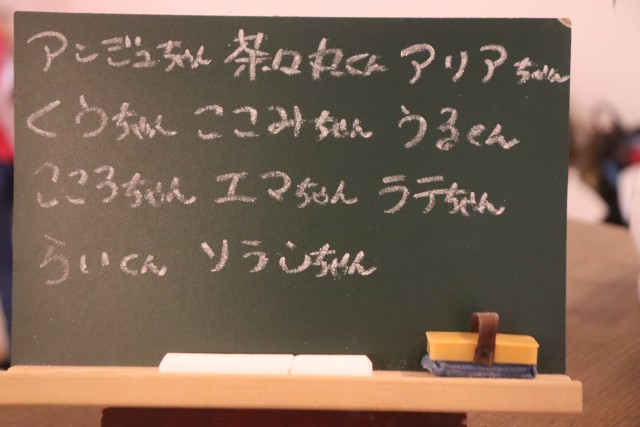 アンジュちゃん 茶々丸くん アリアちゃん
くうちゃん ここみちゃん うるくん
こころちゃん エマちゃん ラテちゃん
らいくん ソランちゃん